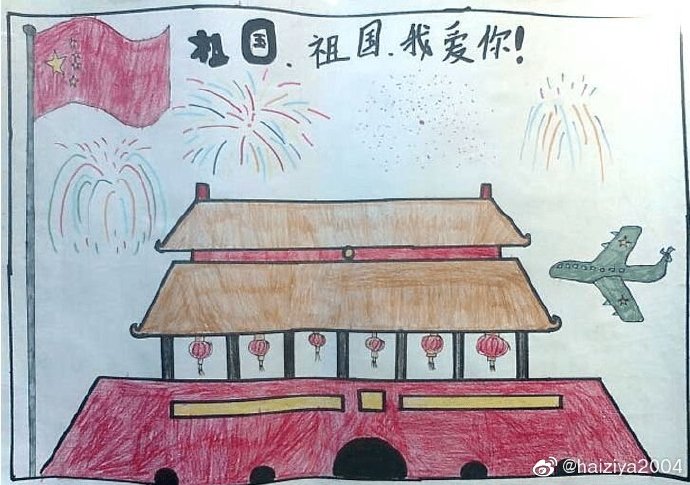 祖国、祖国、我爱你!
@haiziya2004